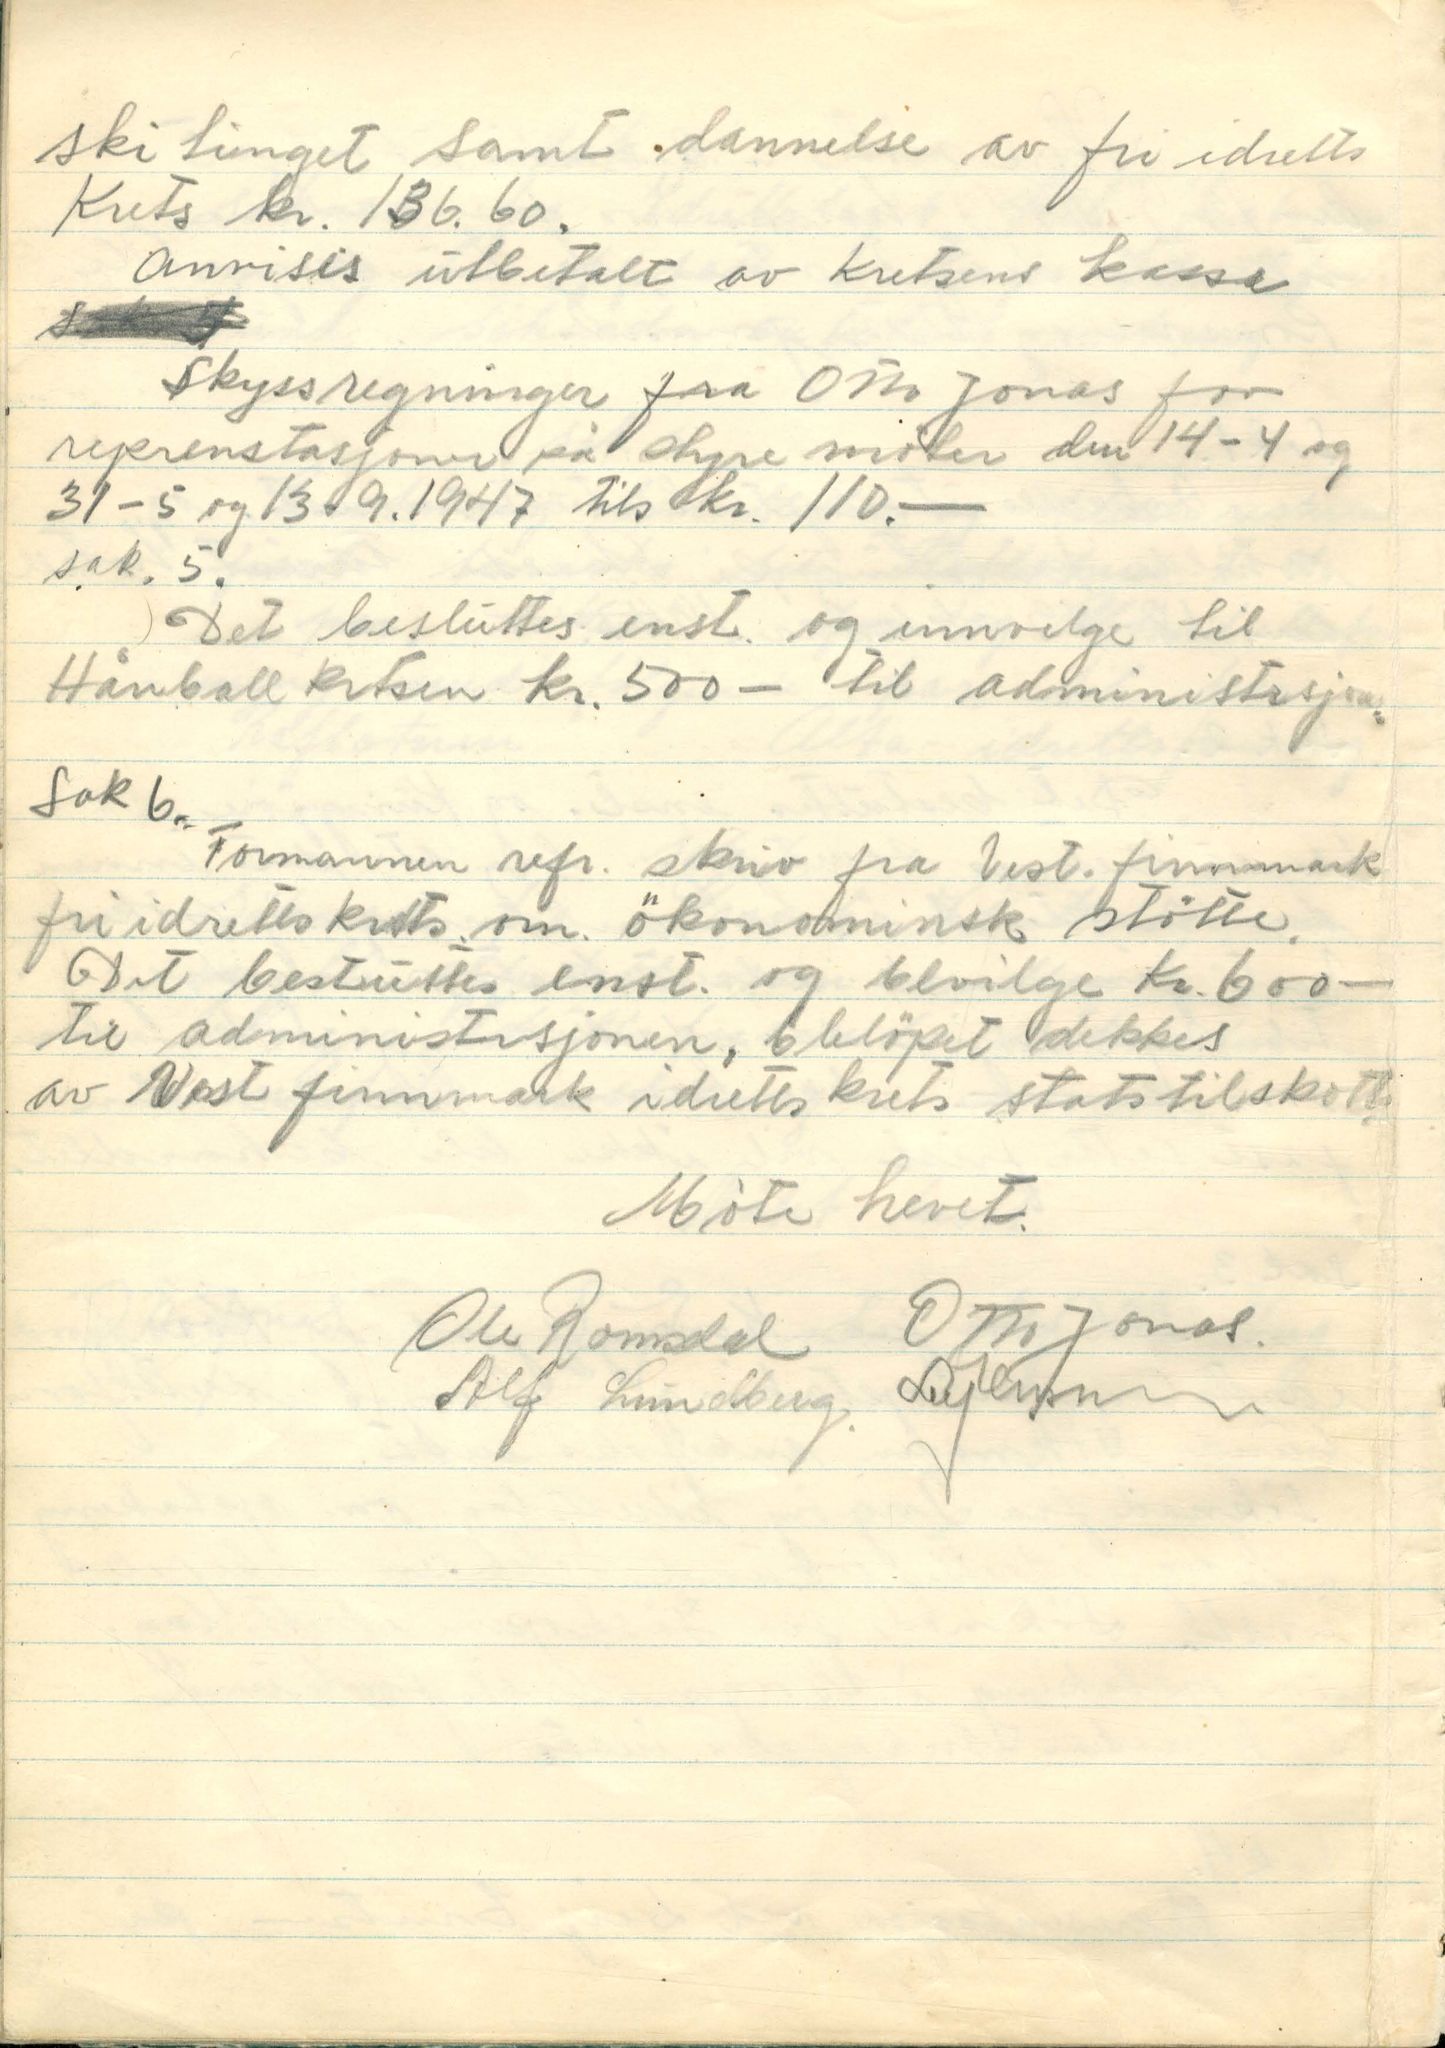 ski tinget samt dannelse av fri idretts
Krets kr. 136.60.
Anvises utbetalt av Kretsens kassa
Skyssregninger fra Otto Jonas for
reprenstasjoner på styre møter den 14-4 og
31-5 og 13.9.1947 tils kr. 110.—
sak. 5.
Det besluttes enst. og innvilge til
Hånball kretsen kr. 500— til administrsjon.
Sak 6.
Formannen refr. skriv fra Vest. finnmark
fri idretts krets. om. ökonominsk stötte.
Det besluttes enst. og bevilge Kr. 600—
til administrsjonen, belöpet dekkes
av Vest finnmark idretts krets statstilskott.
Möte hevet.
Ole Romsdal Otto Jonas.
Alf Lundberg.